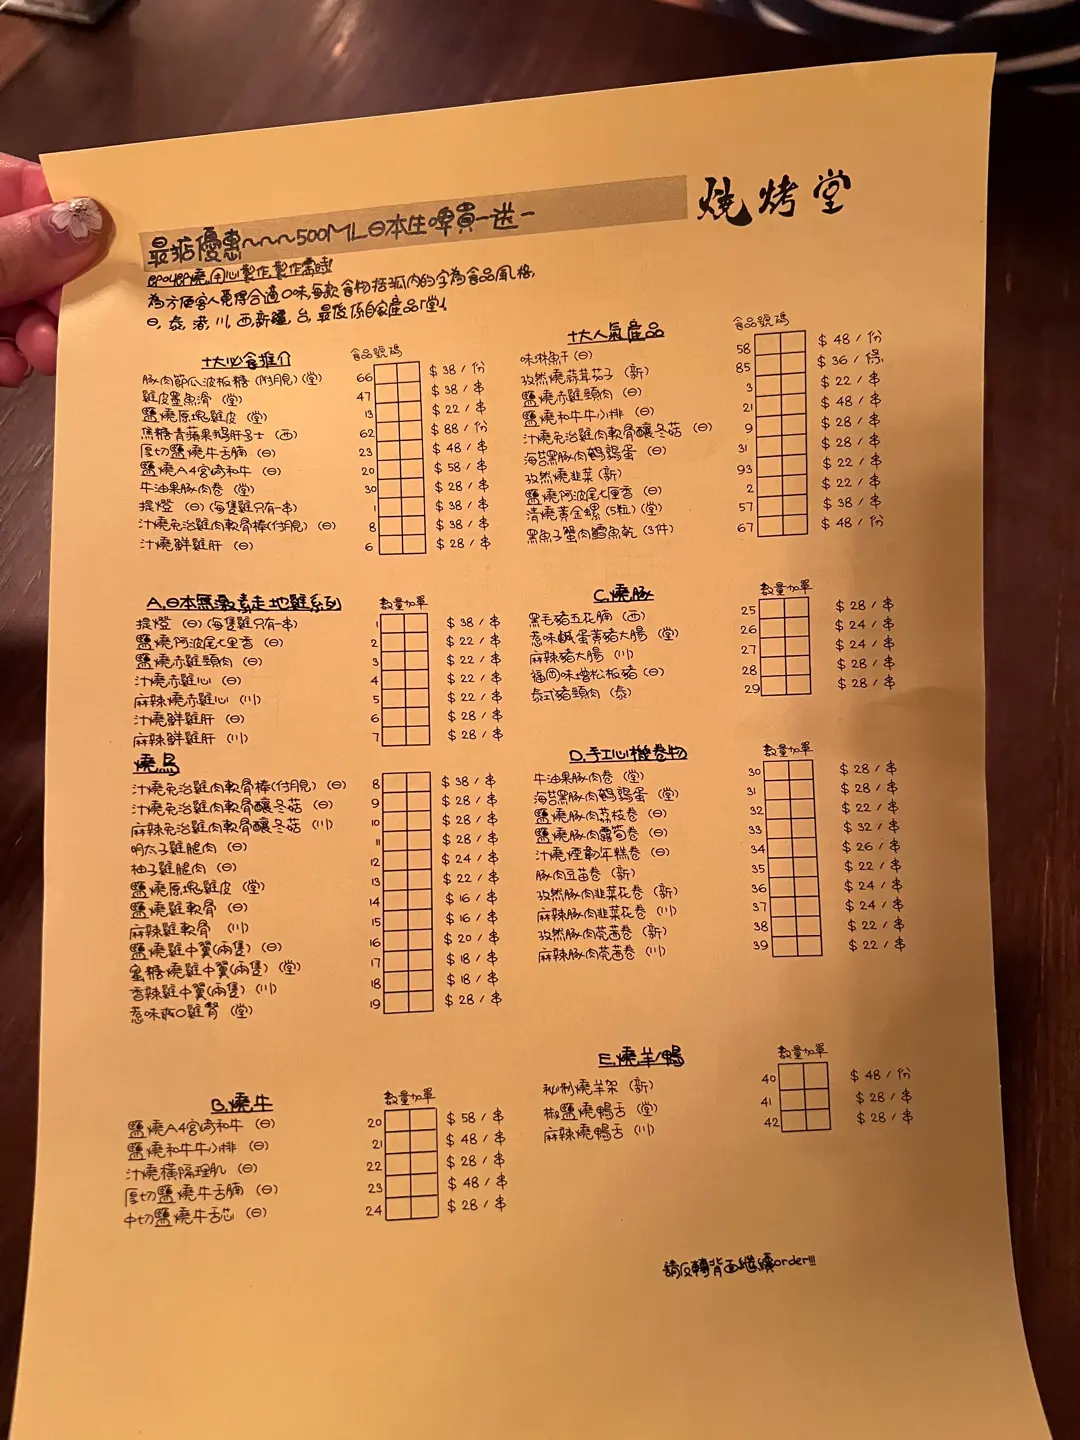 燒烤堂
最新優惠~~~500ML日本生啤買一送一
即叫即燒,用心製作,製作需時!
為方便客人覓得合適口味,每款食物括弧內的字為食品風格,
日,泰,港,川,西,新疆,台,最後係自家產品「堂」
十大必食推介 食品號碼
豚肉節瓜波板糖(附月見)(堂) 66 $38/份
雞皮墨魚滑(堂) 47 $38/串
鹽燒原塊雞皮(堂) 13 $22/串
焦糖青蘋果鵝肝多士(西) 62 $88/份
厚切鹽燒牛舌腩(日) 23 $48/串
鹽燒A4宮崎和牛(日) 20 $58/串
牛油果豚肉卷(堂) 30 $28/串
提燈(日)(每隻雞只有一串) 1 $38/串
汁燒免治雞肉軟骨棒(付月見)(日) 8 $38/串
汁燒鮮雞肝(日) 6 $28/串
十大人氣產品 食品號碼
味淋魚干(日) 58 $48/份
孜然燒蒜茸茄子(新) 85 $36/條
鹽燒赤雞頸肉(日) 3 $22/串
鹽燒和牛牛小排(日) 21 $48/串
汁燒免治雞肉軟骨釀冬菇(日) 9 $28/串
海苔黑豚肉鵪鶉蛋(日) 31 $28/串
孜然燒韭菜(新) 93 $22/串
鹽燒阿波尾七里香(日) 2 $22/串
清燒黃金螺(5粒)(堂) 57 $38/串
黑魚子蟹肉鱈魚乾(3件) 67 $48/份
A.日本無激素走地雞系列 數量加單
提燈(日)(每隻雞只有一串) 1 $38/串
鹽燒阿波尾七里香(日) 2 $22/串
鹽燒赤雞頸肉(日) 3 $22/串
汁燒赤雞心(日) 4 $22/串
麻辣燒赤雞心(川) 5 $22/串
汁燒鮮雞肝(日) 6 $28/串
麻辣鮮雞肝(川) 7 $28/串
燒鳥
汁燒免治雞肉軟骨棒(付月見)(日) 8 $38/串
汁燒免治雞肉軟骨釀冬菇(日) 9 $28/串
麻辣免治雞肉軟骨釀冬菇(川) 10 $28/串
明太子雞腿肉(日) 11 $28/串
柚子雞腿肉(日) 12 $24/串
鹽燒原塊雞皮(堂) 13 $22/串
鹽燒雞軟骨(日) 14 $16/串
麻辣雞軟骨(川) 15 $16/串
鹽燒雞中翼(兩隻)(日) 16 $20/串
蜜糖燒雞中翼(兩隻)(堂) 17 $18/串
香辣雞中翼(兩隻)(川) 18 $18/串
惹味爽口雞腎(堂) 19 $28/串
B.燒牛 數量加單
鹽燒A4宮崎和牛(日) 20 $58/串
鹽燒和牛牛小排(日) 21 $48/串
汁燒橫隔理肌(日) 22 $28/串
厚切鹽燒牛舌腩(日) 23 $48/串
中切鹽燒牛舌芯(日) 24 $28/串
C.燒豚 數量加單
黑毛豬五花腩(西) 25 $28/串
惹味鹹蛋黃豬大腸(堂) 26 $24/串
麻辣豬大腸(川) 27 $24/串
福岡味增松板豬(日) 28 $28/串
泰式豬頸肉(泰) 29 $28/串
D.手工心機卷物 數量加單
牛油果豚肉卷(堂) 30 $28/串
海苔黑豚肉鵪鶉蛋(堂) 31 $28/串
鹽燒豚肉荔枝卷(日) 32 $22/串
鹽燒豚肉露筍卷(日) 33 $32/串
汁燒煙韌年糕卷(日) 34 $26/串
豚肉豆苗卷(新) 35 $22/串
孜然豚肉韭菜花卷(新) 36 $24/串
麻辣豚肉韭菜花卷(川) 37 $24/串
孜然豚肉芫茜卷(新) 38 $22/串
麻辣豚肉芫茜卷(川) 39 $22/串
E.燒羊/鴨 數量加單
秘制燒羊架(新) 40 $48/份
椒鹽燒鴨舌(堂) 41 $28/串
麻辣燒鴨舌(川) 42 $28/串
請反轉背面繼續order!!!